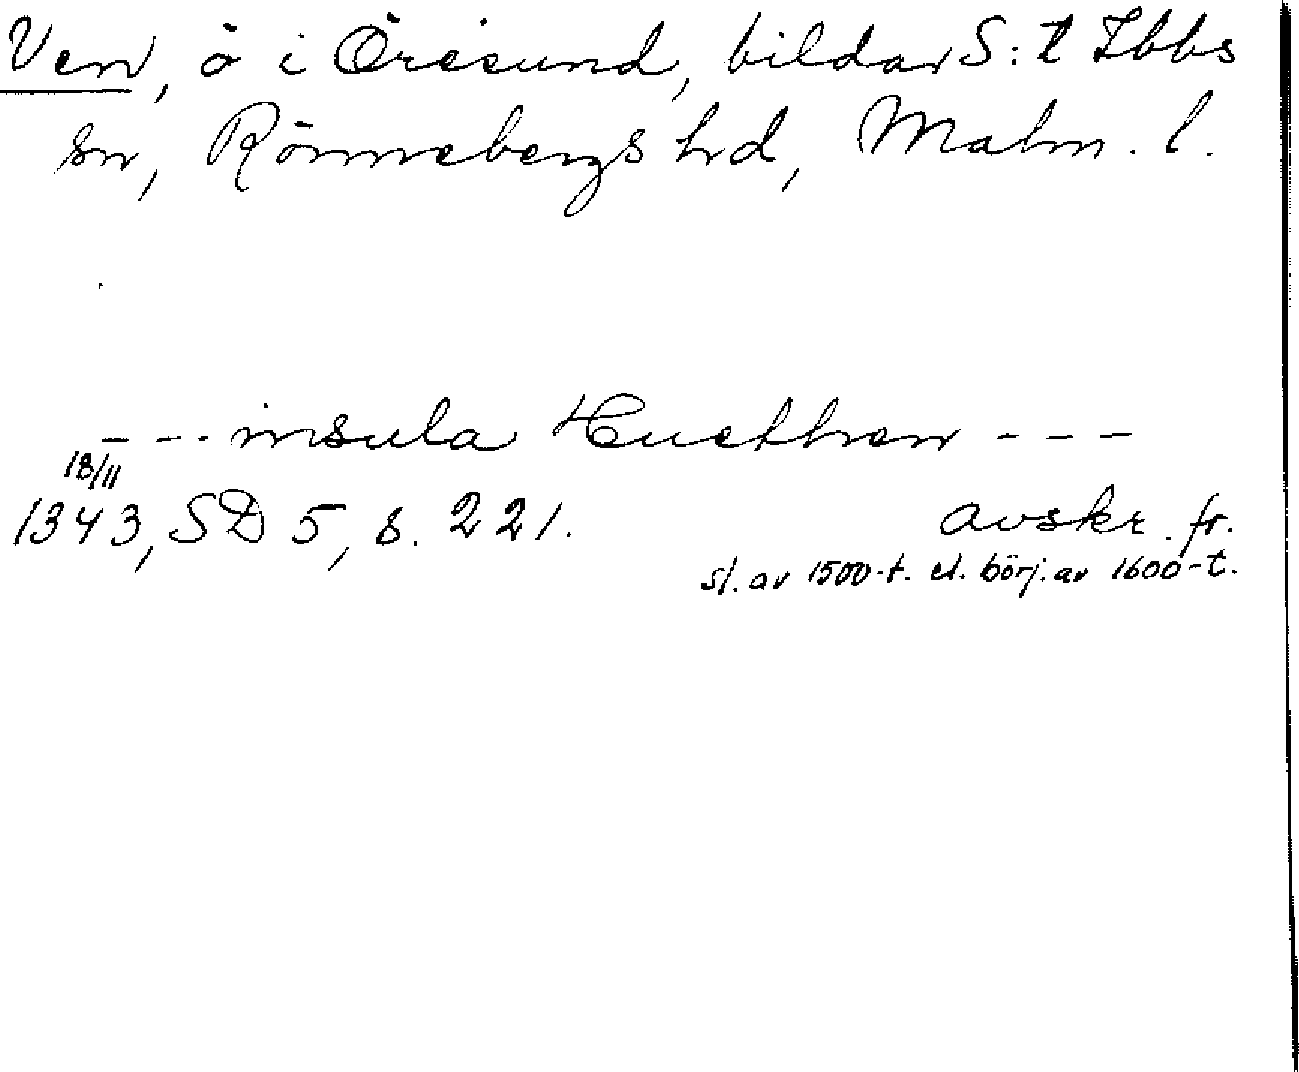 Ven, ö i Öresund, bildar S:t Ibbs
sn, Rönnebergs hd, Malm. l.
--- insula Huethen ---
18/11
1343, SD 5, s. 221.
avskr. fr.
sl. av 1500-t. el. börj. av 1600-t.